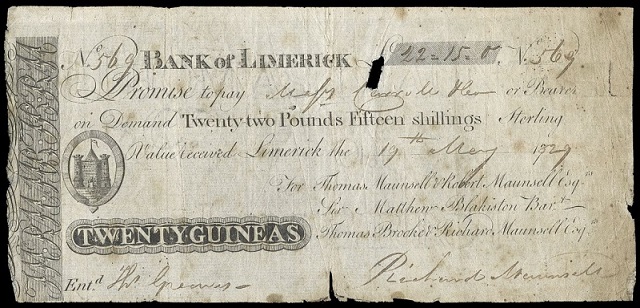 No. 569 BANK of LIMERICK 22-15-0. No. 569
Promise to pay Messrs or Bearer
on Demand Twenty-two Pounds Fifteen shillings Sterling
Value received Limerick the 19th May
For Thomas Maunsell & Robert Maunsell Esqrs
Sir Matthew Blakiston Bart
Thomas Brooke & Richard Maunsell Esqrs
TWENTY GUINEAS
Entd Richard Maunsell